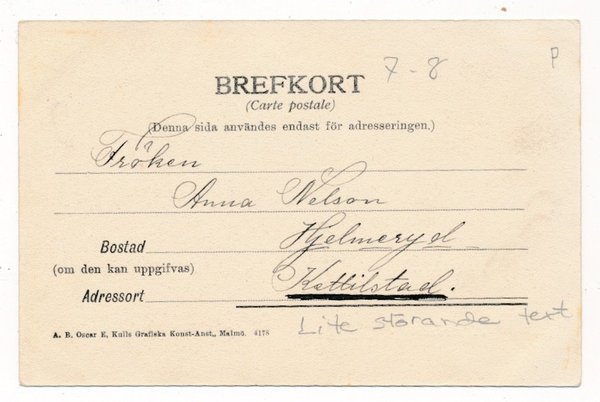 P
7-8
BREFKORT
(Carte postale)
(Denna sida användes endast för adresseringen.)
Fröken
Anna Nelson
Bostad Hjelmeryd
(om den kan uppgifvas)
Adressort Kattilstad.
A. B. Oscar E. Kulls Grafiska Konst-Anst., Malmö. 4178
Lite störande text